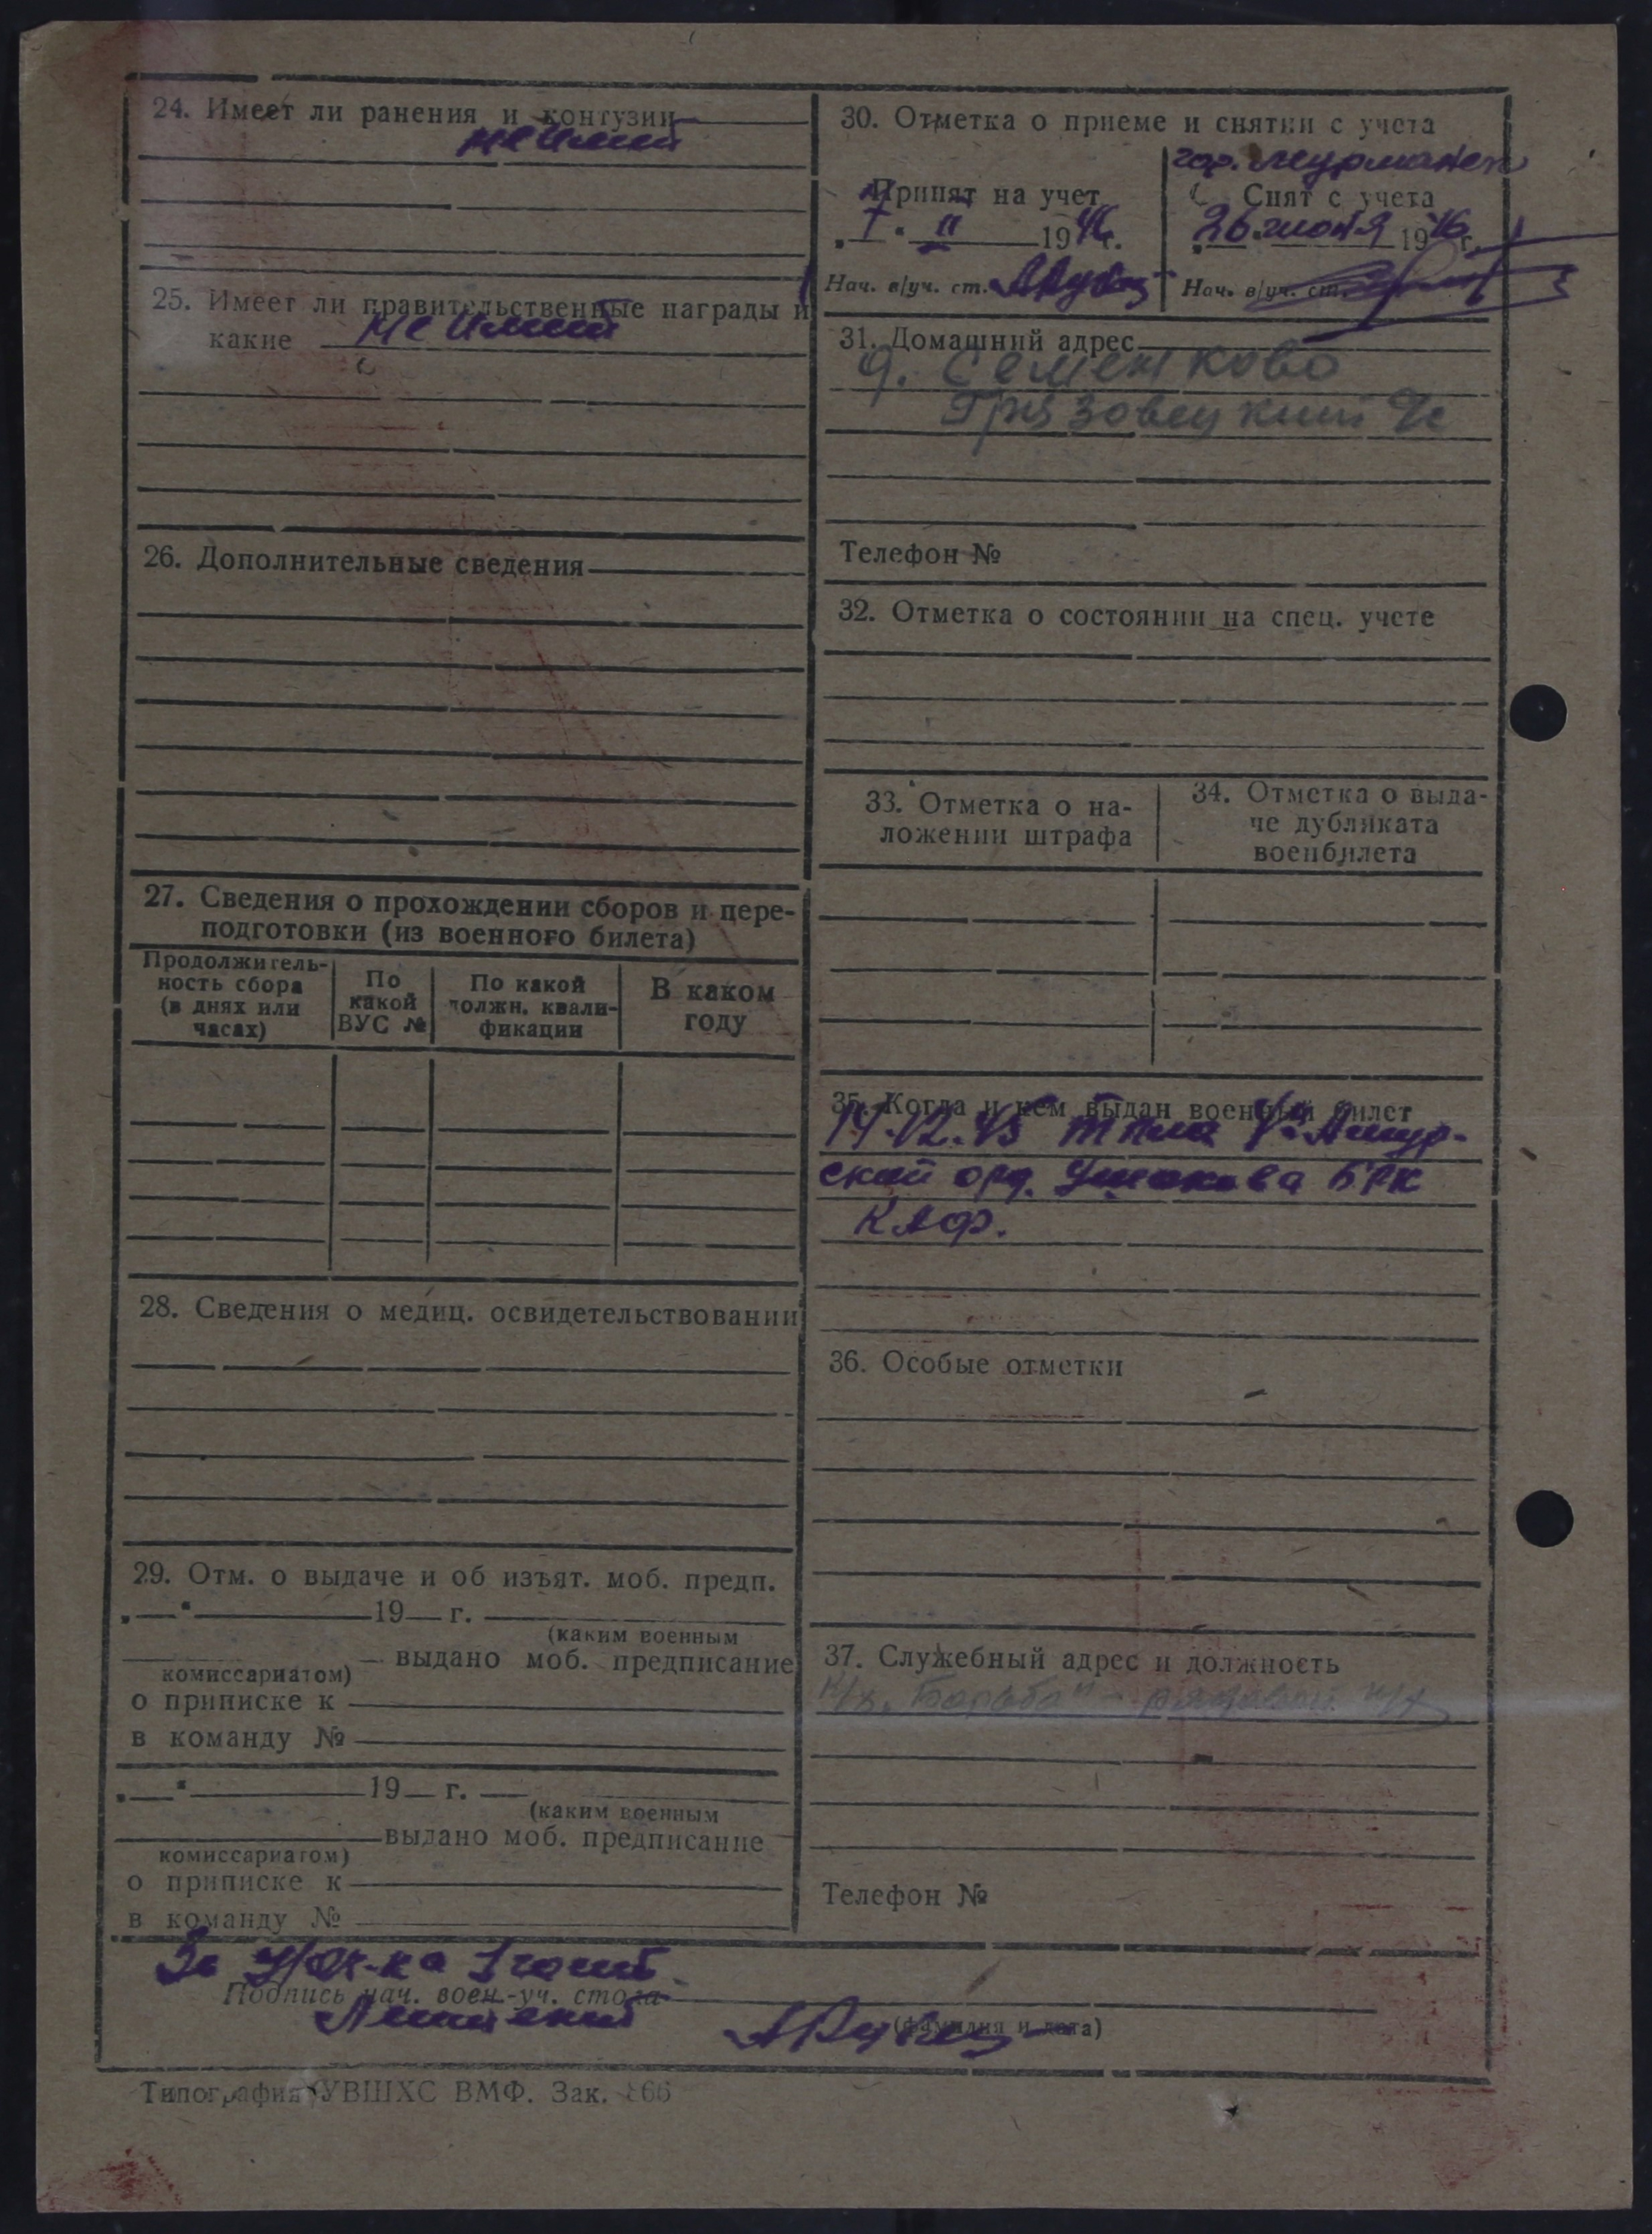 24. Имеет ли ранения и контузии
не имеет
25. Имеет ли правительственные награды и
какие не имеет
26. Дополнительные сведения
27. Сведения о прохождении сборов и пере-
подготовки (из военного билета)
Продолжитель-
ность сбора
(в днях или
часах)
По
какой
ВУС №
По какой
должн. квали-
фикации
В каком
году
28. Сведения о медиц. освидетельствовании
29. Отм. о выдаче и об изъят. моб. предп.
„ “ 19 г.
(каким военным
выдано моб. предписание
комиссариатом)
о приписке к
в команду №
„ “ 19 г.
(каким военным
выдано моб. предписание
комиссариатом)
о приписке к
в команду №
30. Отметка о приеме и снятии с учета
гор. Мурманск
Принят на учет
„ “ II 1946 г.
Нач. в/уч. ст.
Снят с учета
26 июня 1946 г.
Нач. в/уч. ст.
31. Домашний адрес
д. Семенково
Грязовецкий
Телефон №
32. Отметка о состоянии на спец. учете
33. Отметка о на-
ложении штрафа
34. Отметка о выда-
че дубликата
военбилета
35. Когда и кем выдан военный билет
14.12.45 Амур-
ской орд. Ушакова БРК
КАФ.
36. Особые отметки
37. Служебный адрес и должность
„Борьба“ - рядовой
Телефон №
За
Подпись нач. воен.-уч. стола
(фамилия и дата)
Типография УВШХС ВМФ. Зак.